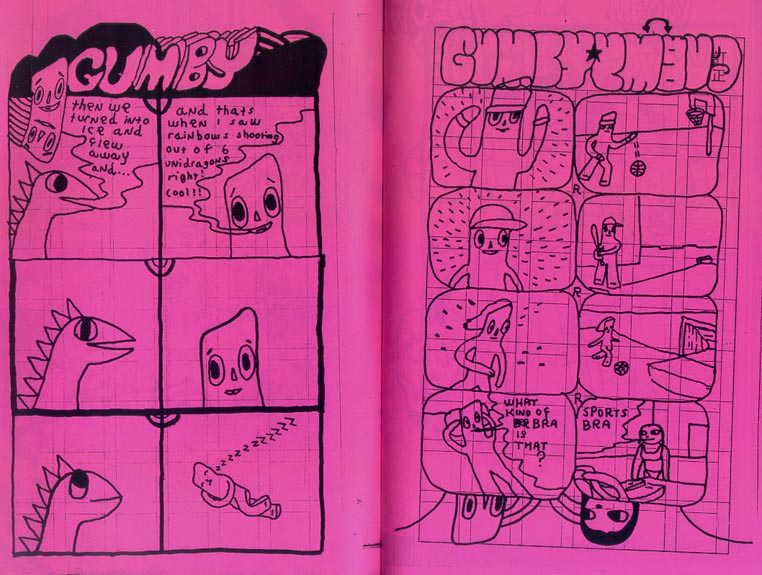 GUMBY
then we
turned into
ice and
flew
away
and...
and thats
when I saw
rainbows shooting
out of 6
unidragons
right!
cool!!!
zzzzzzzzzzzz
GUMBY
R
R
R
WHAT
KIND OF
BRA
IS
THAT
?
SPORTS
BRA